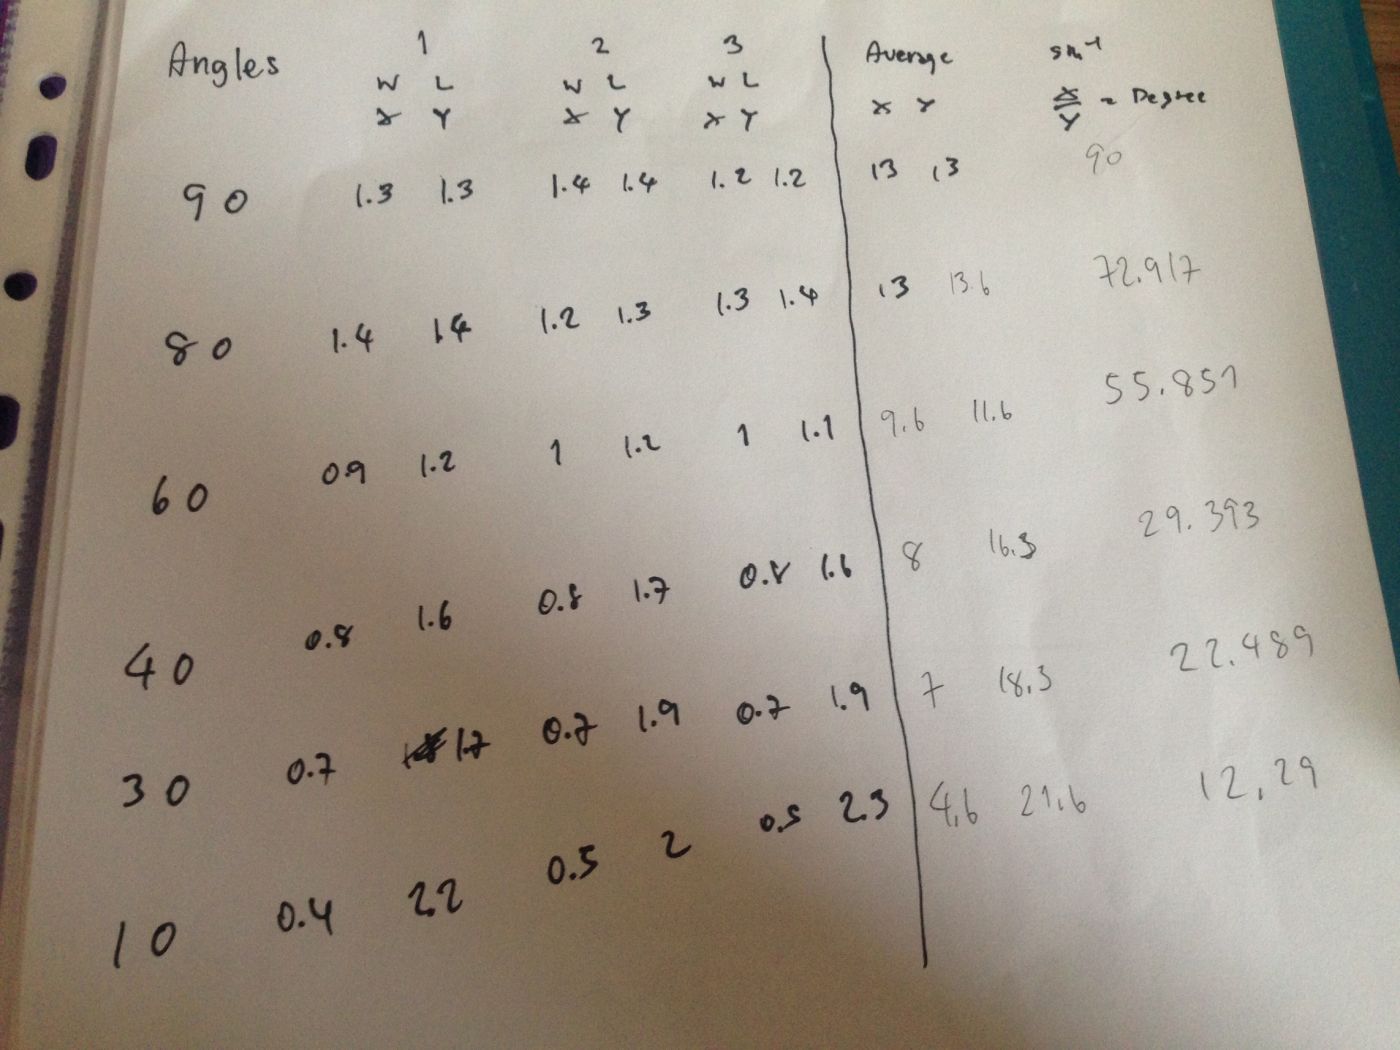 Angles 1 2 3 Average sin⁻¹
W L W L W L
X Y X Y X Y X Y X/Y = Degree
90 1.3 1.3 1.4 1.4 1.2 1.2 13 13 90
80 1.4 14 1.2 1.3 1.3 1.4 13 13.6 72.917
60 0.9 1.2 1 1.2 1 1.1 9.6 11.6 55.851
40 0.8 1.6 0.8 1.7 0.8 1.6 8 16.3 29.393
30 0.7 1.7 0.7 1.9 0.7 1.9 7 18.3 22.489
10 0.4 22 0.5 2 0.5 2.3 4.6 21.6 12.29